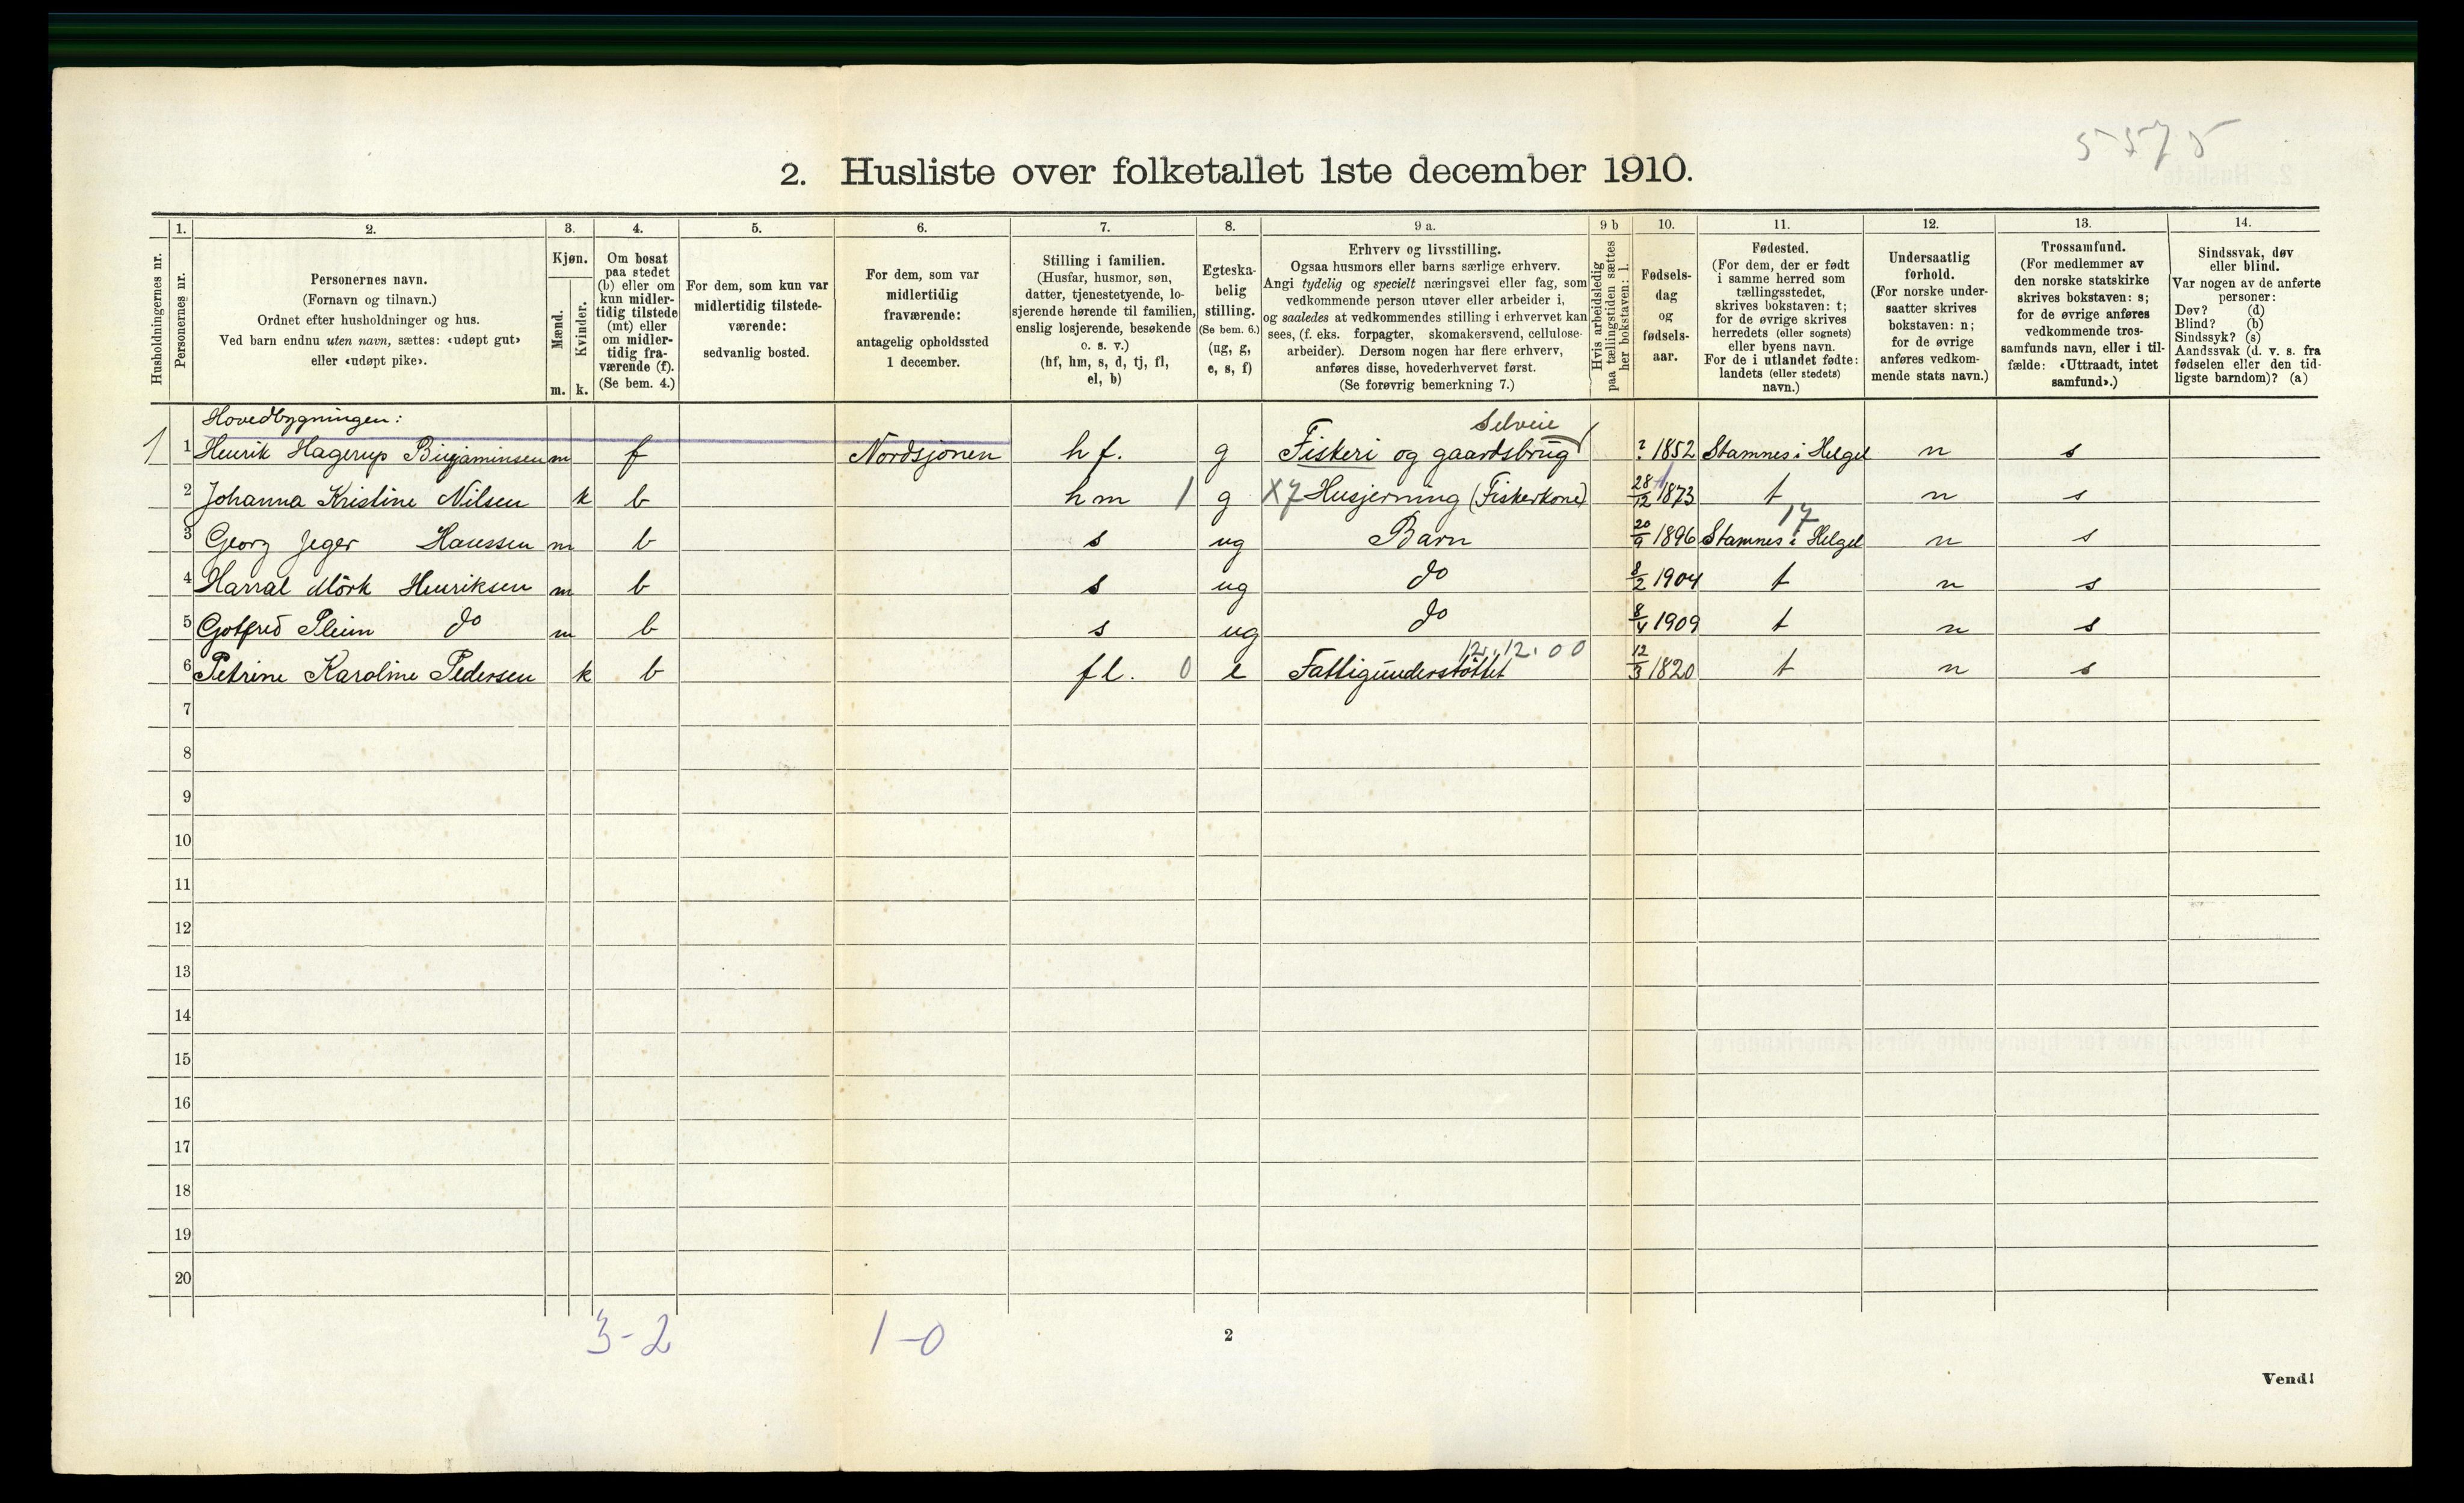 5575
2. Husliste over folketallet 1ste december 1910.
Husholdningernes nr.
1.
Personernes nr.
2.
Personernes navn.
(Fornavn og tilnavn.)
Ordnet efter husholdninger og hus.
Ved barn endnu uten navn, sættes: «udøpt gut»
eller «udøpt pike».
3.
Kjøn.
Mænd.
Kvinder.
m. k.
4.
Om bosat
paa stedet
(b) eller om
kun midler-
tidig tilstede
(mt) eller
om midler-
tidig fra-
værende (f).
(Se bem. 4.)
5.
For dem, som kun var
midlertidig tilstede-
værende:
sedvanlig bosted.
6.
For dem, som var
midlertidig
fraværende:
antagelig opholdssted
1 december.
7.
Stilling i familien.
(Husfar, husmor, søn,
datter, tjenestetyende, lo-
sjerende hørende til familien,
enslig losjerende, besøkende
o. s. v.)
(hf, hm, s, d, tj, fl,
el, b)
8.
Egteska-
belig
stilling.
(Se bem. 6.)
(ug, g,
e, s, f)
9 a.
Erhverv og livsstilling.
Ogsaa husmors eller barns særlige erhverv.
Angi tydelig og specielt næringsvei eller fag, som
vedkommende person utøver eller arbeider i,
og saaledes at vedkommendes stilling i erhvervet kan
sees, (f. eks. forpagter, skomakersvend, cellulose-
arbeider). Dersom nogen har flere erhverv,
anføres disse, hovederhvervet først.
(Se forøvrig bemerkning 7.)
9 b
Hvis arbeidsledig
paa tællingstiden sættes
her bokstaven: l.
10.
Fødsels-
dag
og
fødsels-
aar.
11.
Fødested.
(For dem, der er født
i samme herred som
tællingsstedet,
skrives bokstaven: t;
for de øvrige skrives
herredets (eller sognets)
eller byens navn.
For de i utlandet fødte:
landets (eller stedets)
navn.)
12.
Undersaatlig
forhold.
(For norske under-
saatter skrives
bokstaven: n;
for de øvrige
anføres vedkom-
mende stats navn.)
13.
Trossamfund.
(For medlemmer av
den norske statskirke
skrives bokstaven: s;
for de øvrige anføres
vedkommende tros-
samfunds navn, eller i til-
fælde: «Uttraadt, intet
samfund».)
14.
Sindssvak, døv
eller blind.
Var nogen av de anførte
personer:
Døv? (d)
Blind? (b)
Sindssyk? (s)
Aandssvak (d. v. s. fra
fødselen eller den tid-
ligste barndom)? (a)
Hovedbygningen:
Selveie
1 1 Henrik Hagerup Binjaminsen m f Nordsjönen hf. g Fiskeri og gaardsbrug ? 1852 Stamnes i Helgel n s
2 Johanna Kristine Nilsen k b hm 1 g X7 Husjerning (Fiskerkone) 28/12 1873 t n s
17
3 Georg Jeger Hanssen m b s ug Barn 20/9 1896 Stamnes i Helgel n s
4 Harral Mörk Henriksen m b s ug do 8/2 1904 t n s
5 Gotfred Pleim do m b s ug do 8/4 1909 t n s
12.12.00
6 Petrine Karoline Pedersen k b fl. 0 e Fattigunderstöttet 12/3 1820 t n s
7
8
9
10
11
12
13
14
15
16
17
18
19
20
3-2 1-0
2
Vend!